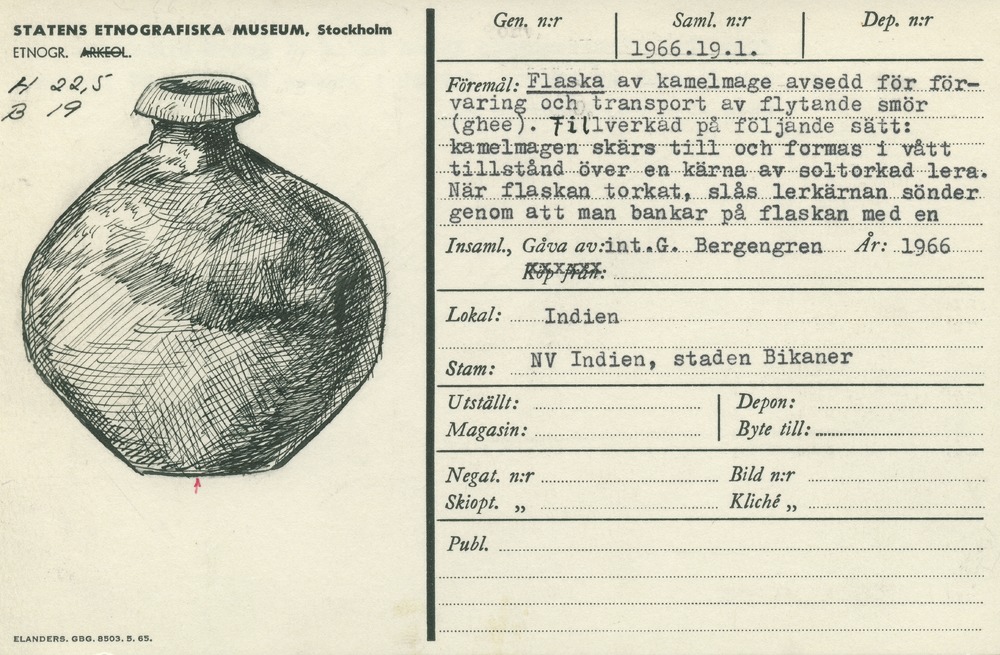 STATENS ETNOGRAFISKA MUSEUM, Stockholm
ETNOGR. ARKEOL.
H 22,5
B 19
Gen. n:r Saml. n:r Dep. n:r
1966.19.1.
Föremål: Flaska av kamelmage avsedd för för-
varing och transport av flytande smör
(ghee). Tillverkad på följande sätt:
kamelmagen skärs till och formas i vått
tillstånd över en kärna av soltorkad lera.
När flaskan torkat, slås lerkärnan sönder
genom att man bankar på flaskan med en
Insaml., Gåva av: int.G. Bergengren År: 1966
Köp från:
Lokal: Indien
Stam: NV Indien, staden Bikaner
Utställt: Depon:
Magasin: Byte till:
Negat. n:r Bild n:r
Skiopt. „ Kliché „
Publ.
ELANDERS. GBG. 8503. 5. 65.